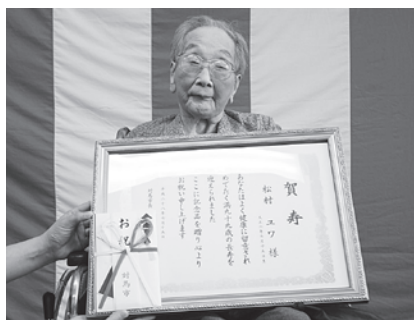 賀寿
松村 ユワ 様
あなたはよく健康に留意され
めでたく満九十九歳の長寿を
迎えられました
ここに記念品を贈り心より
お祝い申し上げます
お祝
対馬市